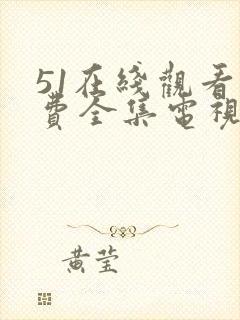 51在綫觀看
費全集電視
黃莹